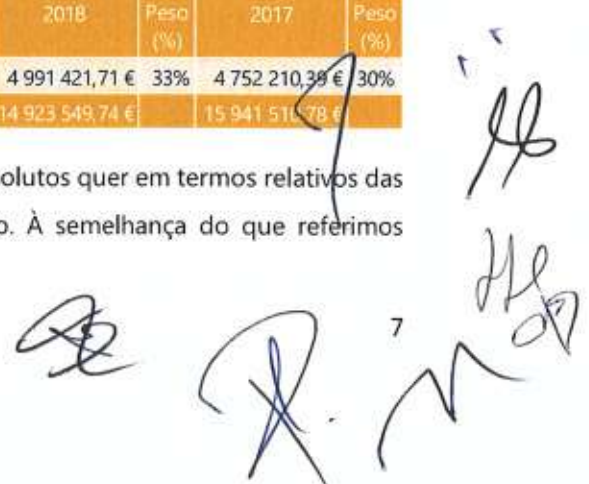 2018 Peso (%) 2017 Peso (%)
4 991 421,71 € 33% 4 752 210,39 € 30%
14 923 549,74 € 15 941 510,78 €
olutos quer em termos relativos das
o. À semelhança do que referimos
7